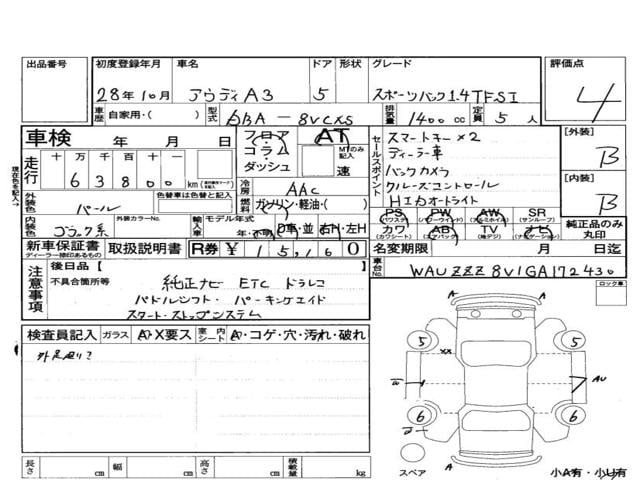 出品番号 初度登録年月 車名 ドア 形状 グレード 評価点
28年10月 アウディA3 5 スポーツバック1.4TFSI 4
車歴 自家用・( ) 型式 DBA-8VCXS 排気量 1400cc 定員 5人
車検 年 月 日 フロア コラム ダッシュ AT MTのみ記入 速
セールスポイント
スマートキー×2
ディーラー車
バックカメラ
クルーズコントロール
HIDオートライト
[外装] B
[内装] B
走行 十万 万 千 百 十 一
63800 km
冷房 AAC
燃料 ガソリン・軽油・( )
外装色 パール 色替車は元色 ( )
内装色 ブラック系 外装カラーNo.
輸入車 モデル年式 年・不明 D車・並 右H・左H
PS PW AW SR
(パワステ) (パワーウインド) (アルミホイル) (サンルーフ)
カワ AB TV ナビ
(カワシート) (エアバック) (地デジ) (ナビゲーション)
純正品のみ丸印
新車保証書 取扱説明書 R券 ¥15,160
ディーラー捺印あるもの
名変期限 月 日迄
車台No. WAUZZZ8V1GA172430
ロック車
注意事項
後日品【 】
不具合箇所等 純正ナビ ETC ドラレコ
パドルシフト・パーキングエイド
スタート・ストップシステム
検査員記入 ガラス A・X要ス 室内シート A・コゲ・穴・汚れ・破れ
A
5 5
xx
AU
6 6
A A
スペア
長さ cm 幅 cm 高さ cm 積載量 kg
小A有・小U有